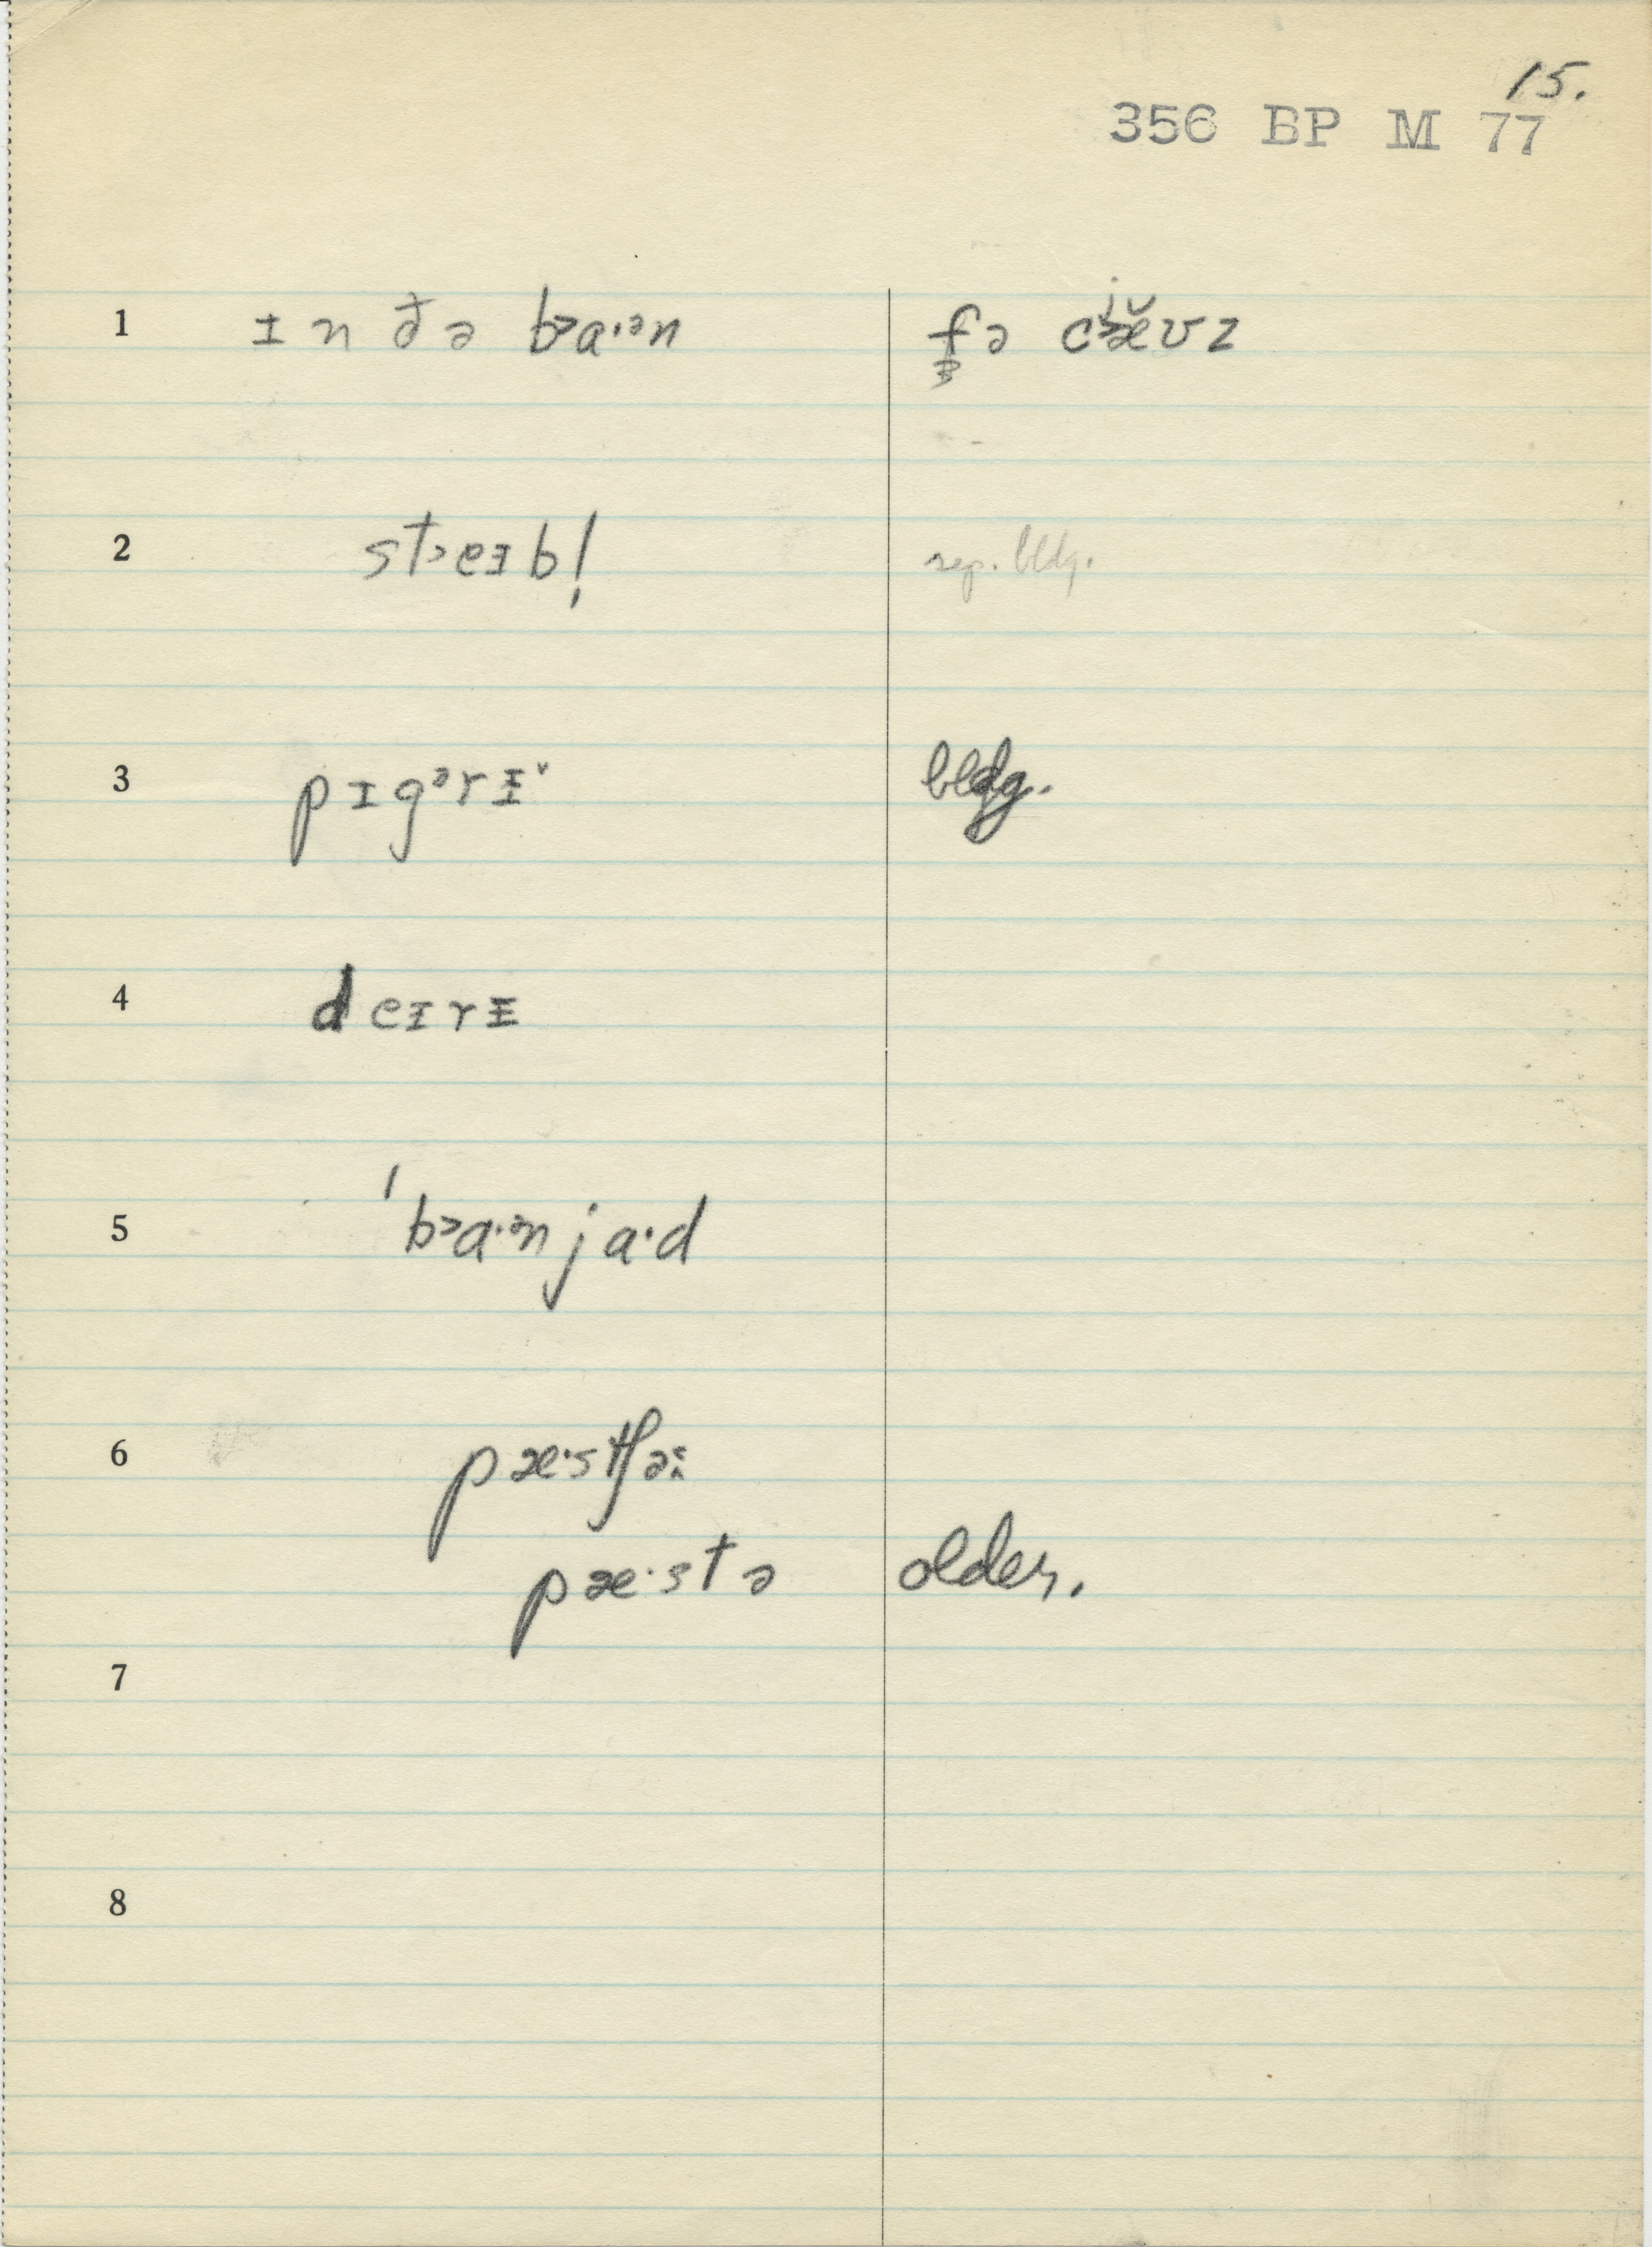 15.
356 BP M 77
1 ɪn ðə b˃a·ᵊn fə c˃ʲæ̆ʊz
2 st˃eɪb! sep. bldg.
3 pɪgᵊrɪ̵ˇ bldg.
4 deɪrɪ̵
5 ˈb˃a·ᵊnja·d
6 pæ·stʃə
pæ·stə older.
7
8